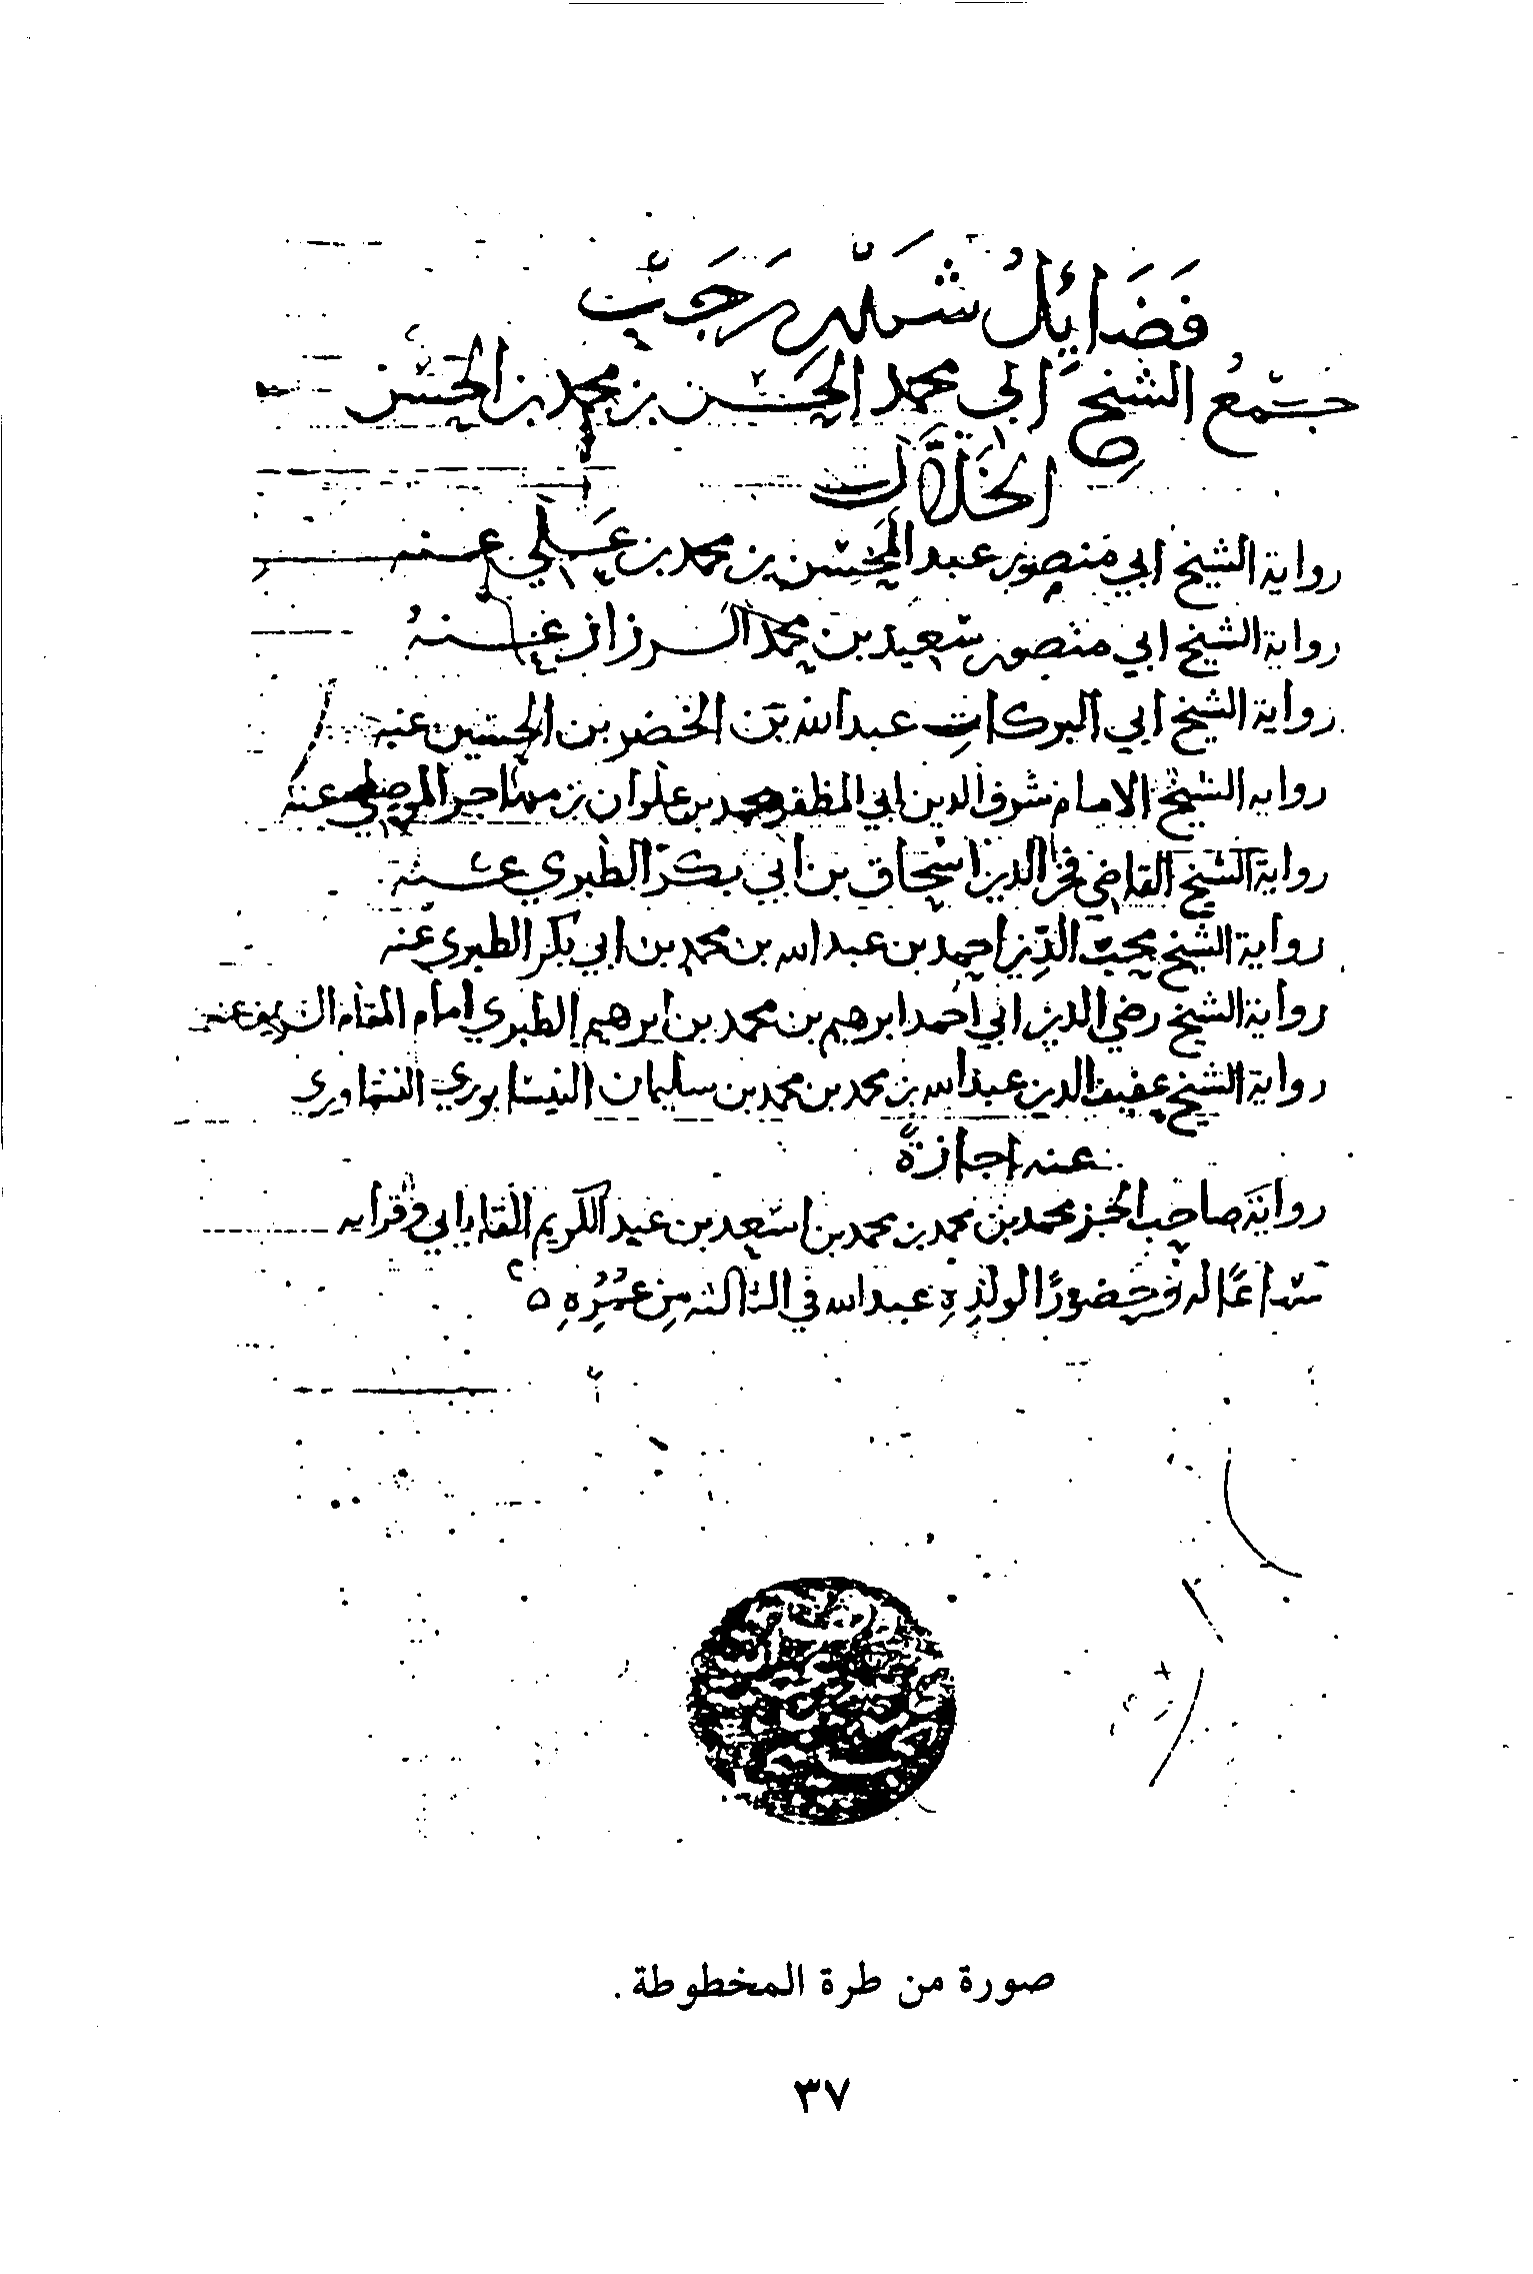 فَضَايِلُ شَهْرِ رَجَبٍ
جمعُ الشيخ ابي محمد الحَسَن بن محمد بن الحسن
الخَلَّال
رواية الشيخ ابي منصور عبد المحسن بن محمد بن عَلي عنه
رواية الشيخ ابي منصور سعيد بن محمد الرزاز عنهُ
رواية الشيخ ابي البركات عبد الله بن الخضر بن الحسين عنه
روايه الشيخ الامام شرف الدين ابي المظفر محمد بن علوان بن مهاجر الموصلي عنه
رواية الشيخ القاضي فخر الدين اسحاق بن ابي بكر الطبري عنه
رواية الشيخ محب الدين احمد بن عبد الله بن محمد بن ابي بكر الطبري عنه
رواية الشيخ رضي الدين ابي احمد ابرهيم بن محمد بن ابرهيم الطبري امام المقام الشريف عنه
رواية الشيخ عفيف الدين عبد الله بن محمد بن محمد بن سليمان النيسابوري النشاوري
عنه اجازةً
رواية صاحب الجز محمد بن محمد بن محمد بن اسعد بن عبد الكريم القاياتي وقرايه
سماعًا له وحضورًا لولدِهِ عبد الله في الثالثه من عُمُرِهِ
صورة من طرة المخطوطة .
٣٧